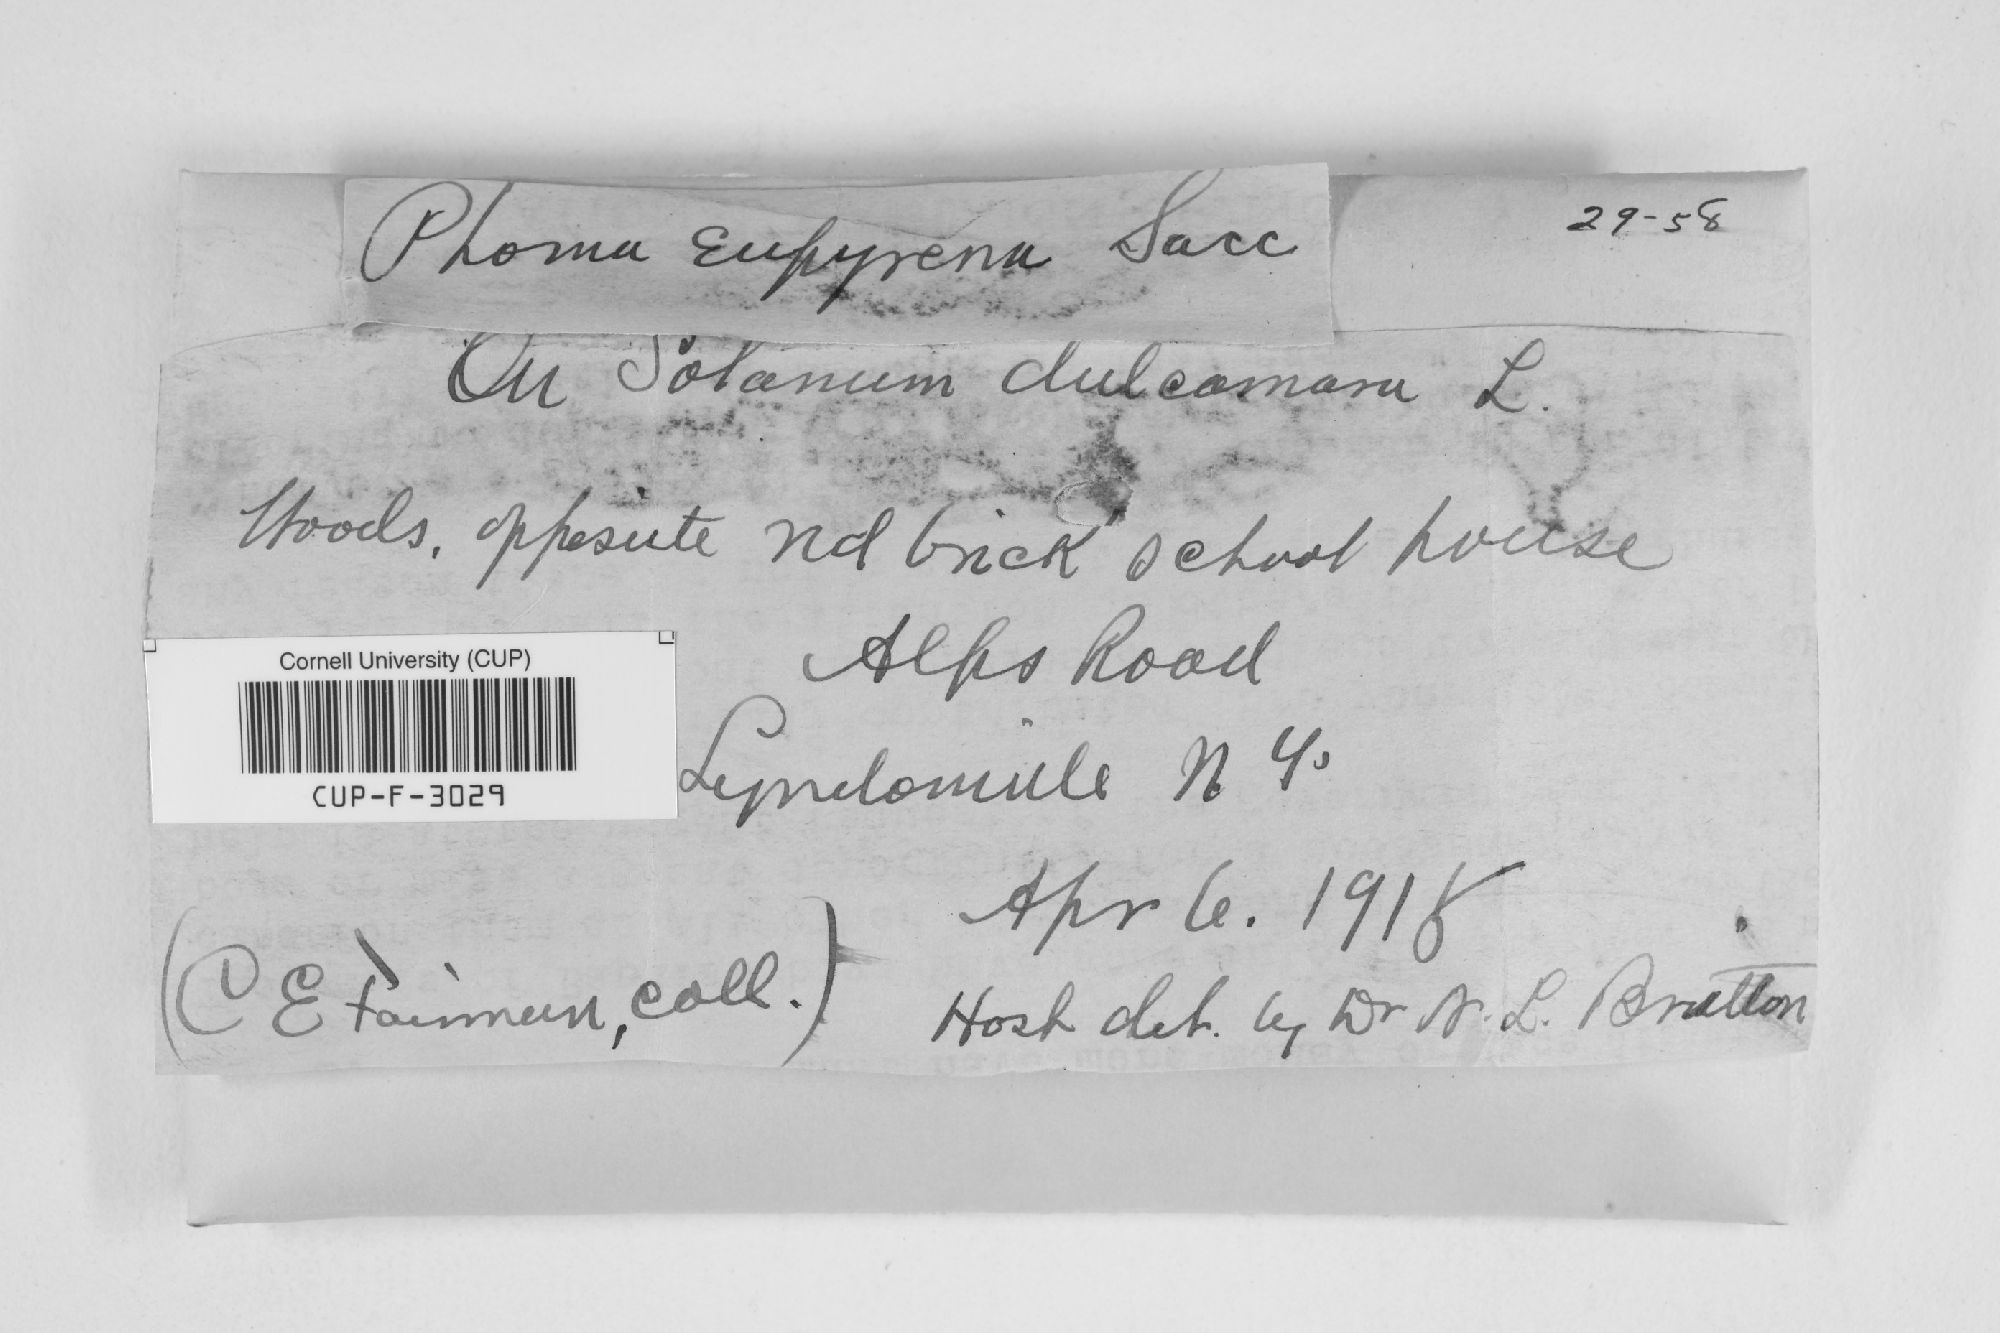 Phoma eupyrena Sacc
29-58
On Solanum dulcamara L.
Woods, opposite red brick school house
Alps Road
Cornell University (CUP)
CUP-F-3029
Lyndonville N Y.
Apr 6. 1918
(C E Fairman, coll.)
Host det. by Dr N. L. Britton